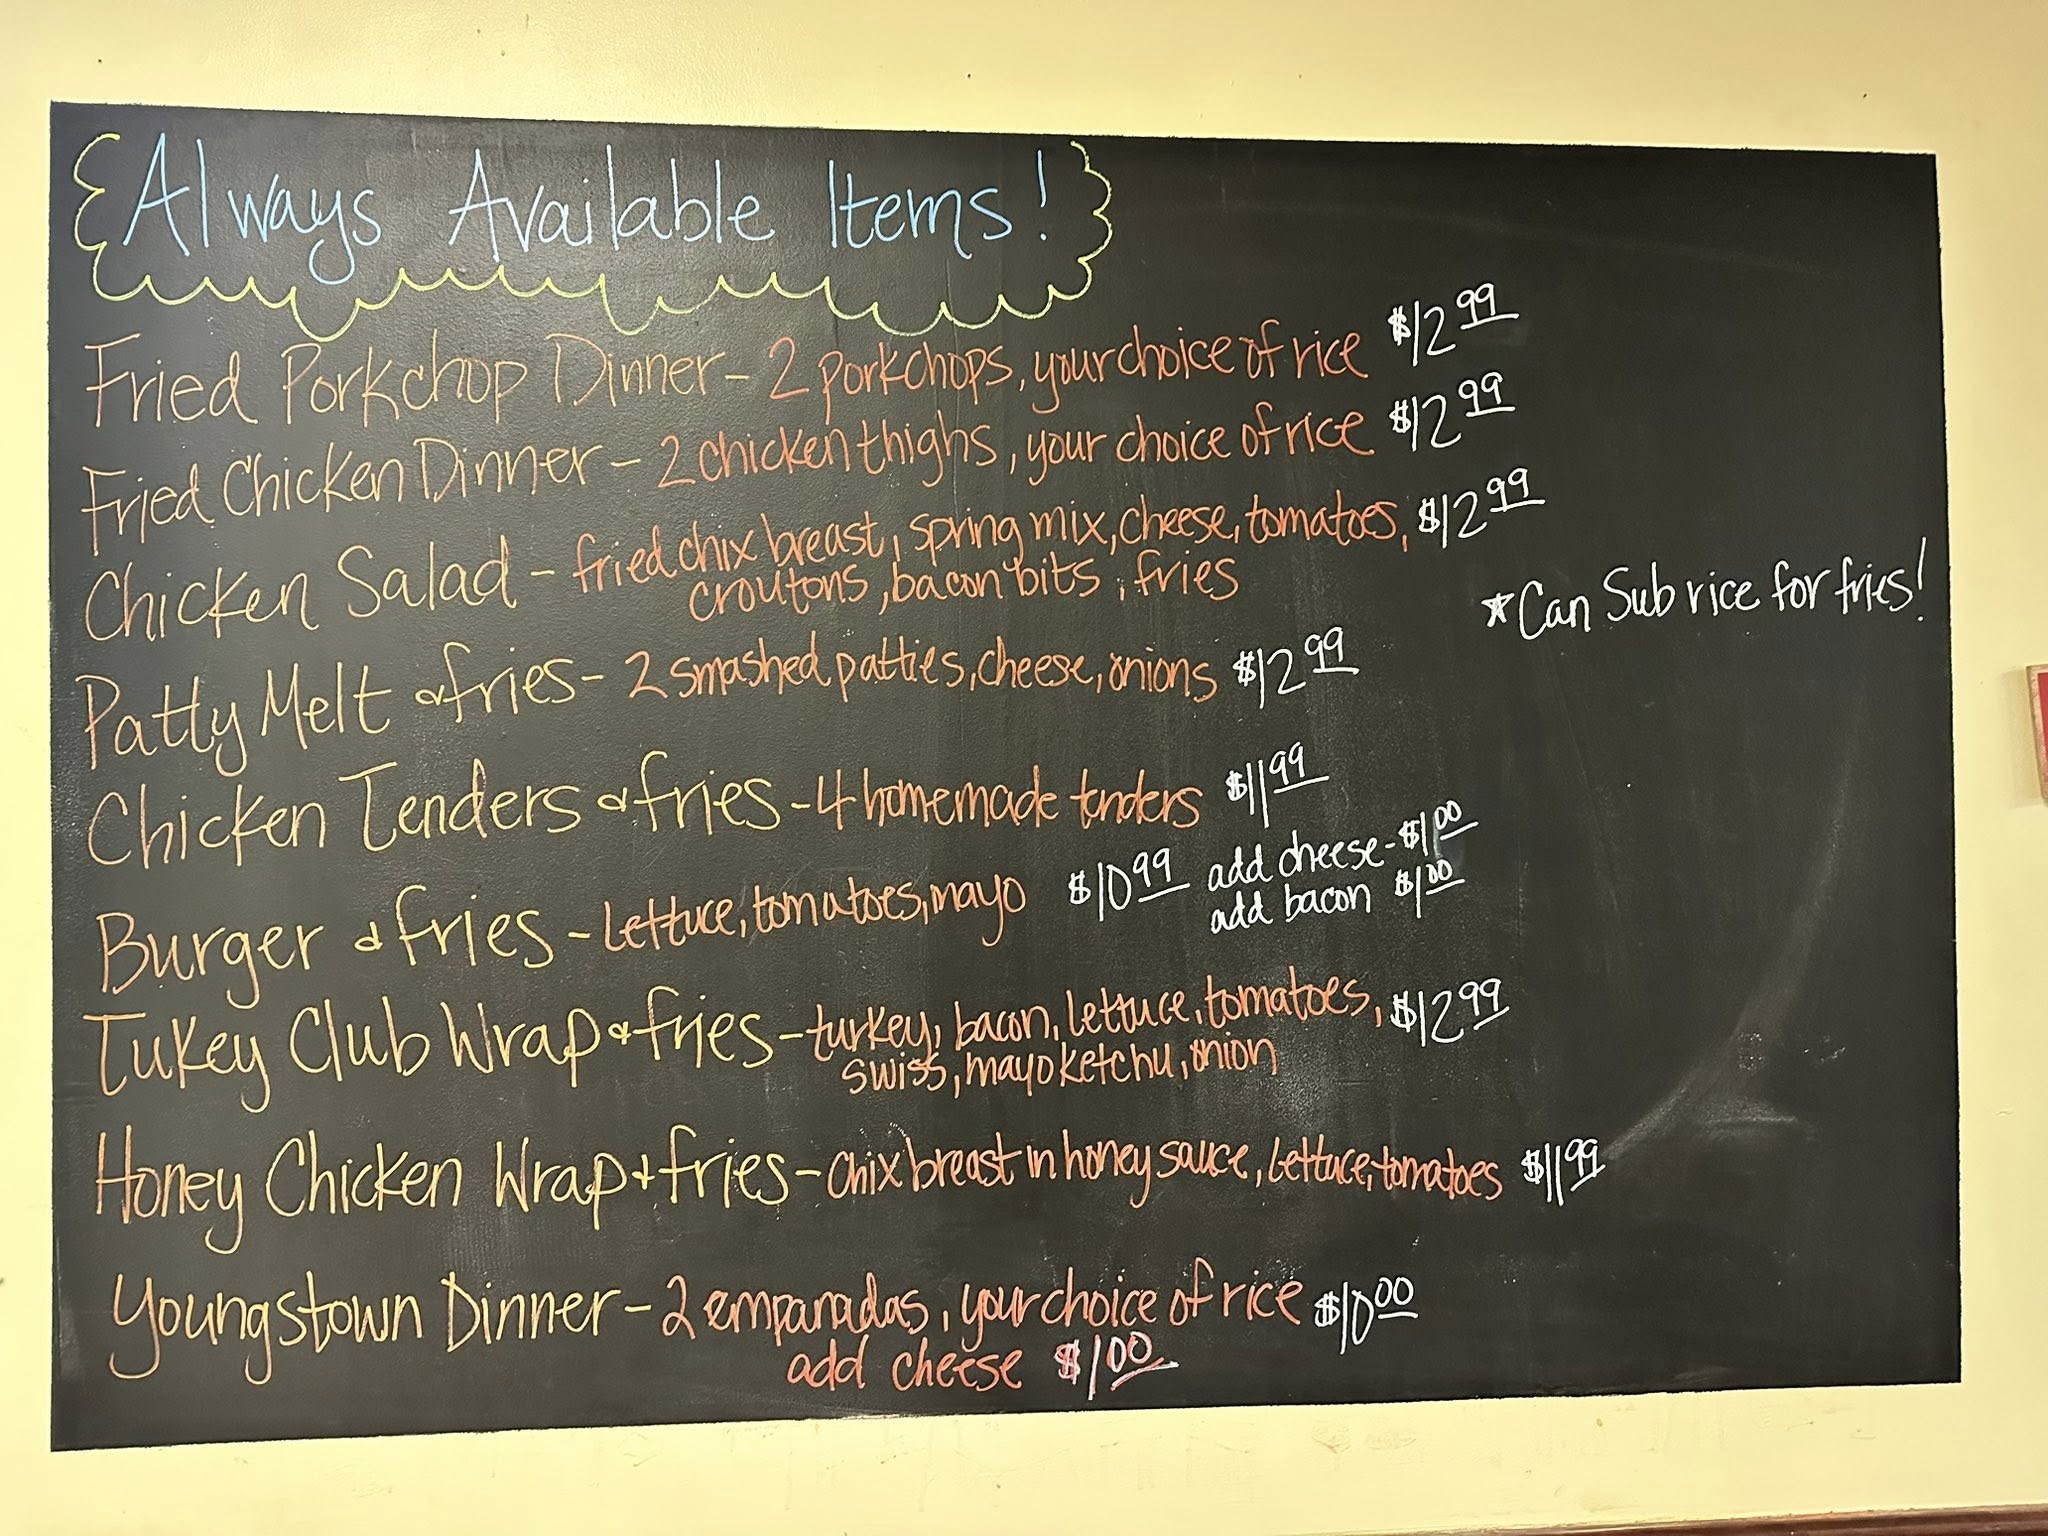 Always Available Items!
Fried Porkchop Dinner - 2 porkchops, your choice of rice $12.99
Fried Chicken Dinner - 2 chicken thighs, your choice of rice $12.99
Chicken Salad - fried chix breast, spring mix, cheese, tomatoes, $12.99
croutons, bacon bits, fries
*Can Sub rice for fries!
Patty Melt & fries - 2 smashed patties, cheese, onions $12.99
Chicken Tenders & fries - 4 homemade tenders $11.99
Burger & fries - Lettuce, tomatoes, mayo $10.99 add cheese - $1.00
add bacon $1.00
Tukey Club Wrap & fries - turkey, bacon, lettuce, tomatoes, $12.99
swiss, mayoketchu, onion
Honey Chicken Wrap + fries - chix breast in honey sauce, lettuce, tomatoes $11.99
Youngstown Dinner - 2 empanadas, your choice of rice $10.00
add cheese $1.00